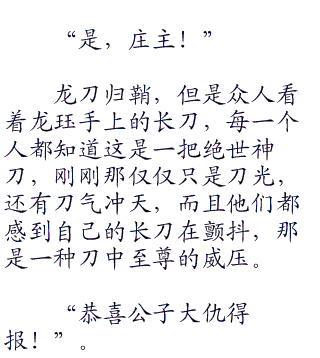 “是，庄主！”
龙刀归鞘，但是众人看
着龙珏手上的长刀，每一个
人都知道这是一把绝世神
刀，刚刚那仅仅只是刀光，
还有刀气冲天，而且他们都
感到自己的长刀在颤抖，那
是一种刀中至尊的威压。
“恭喜公子大仇得
报！”。